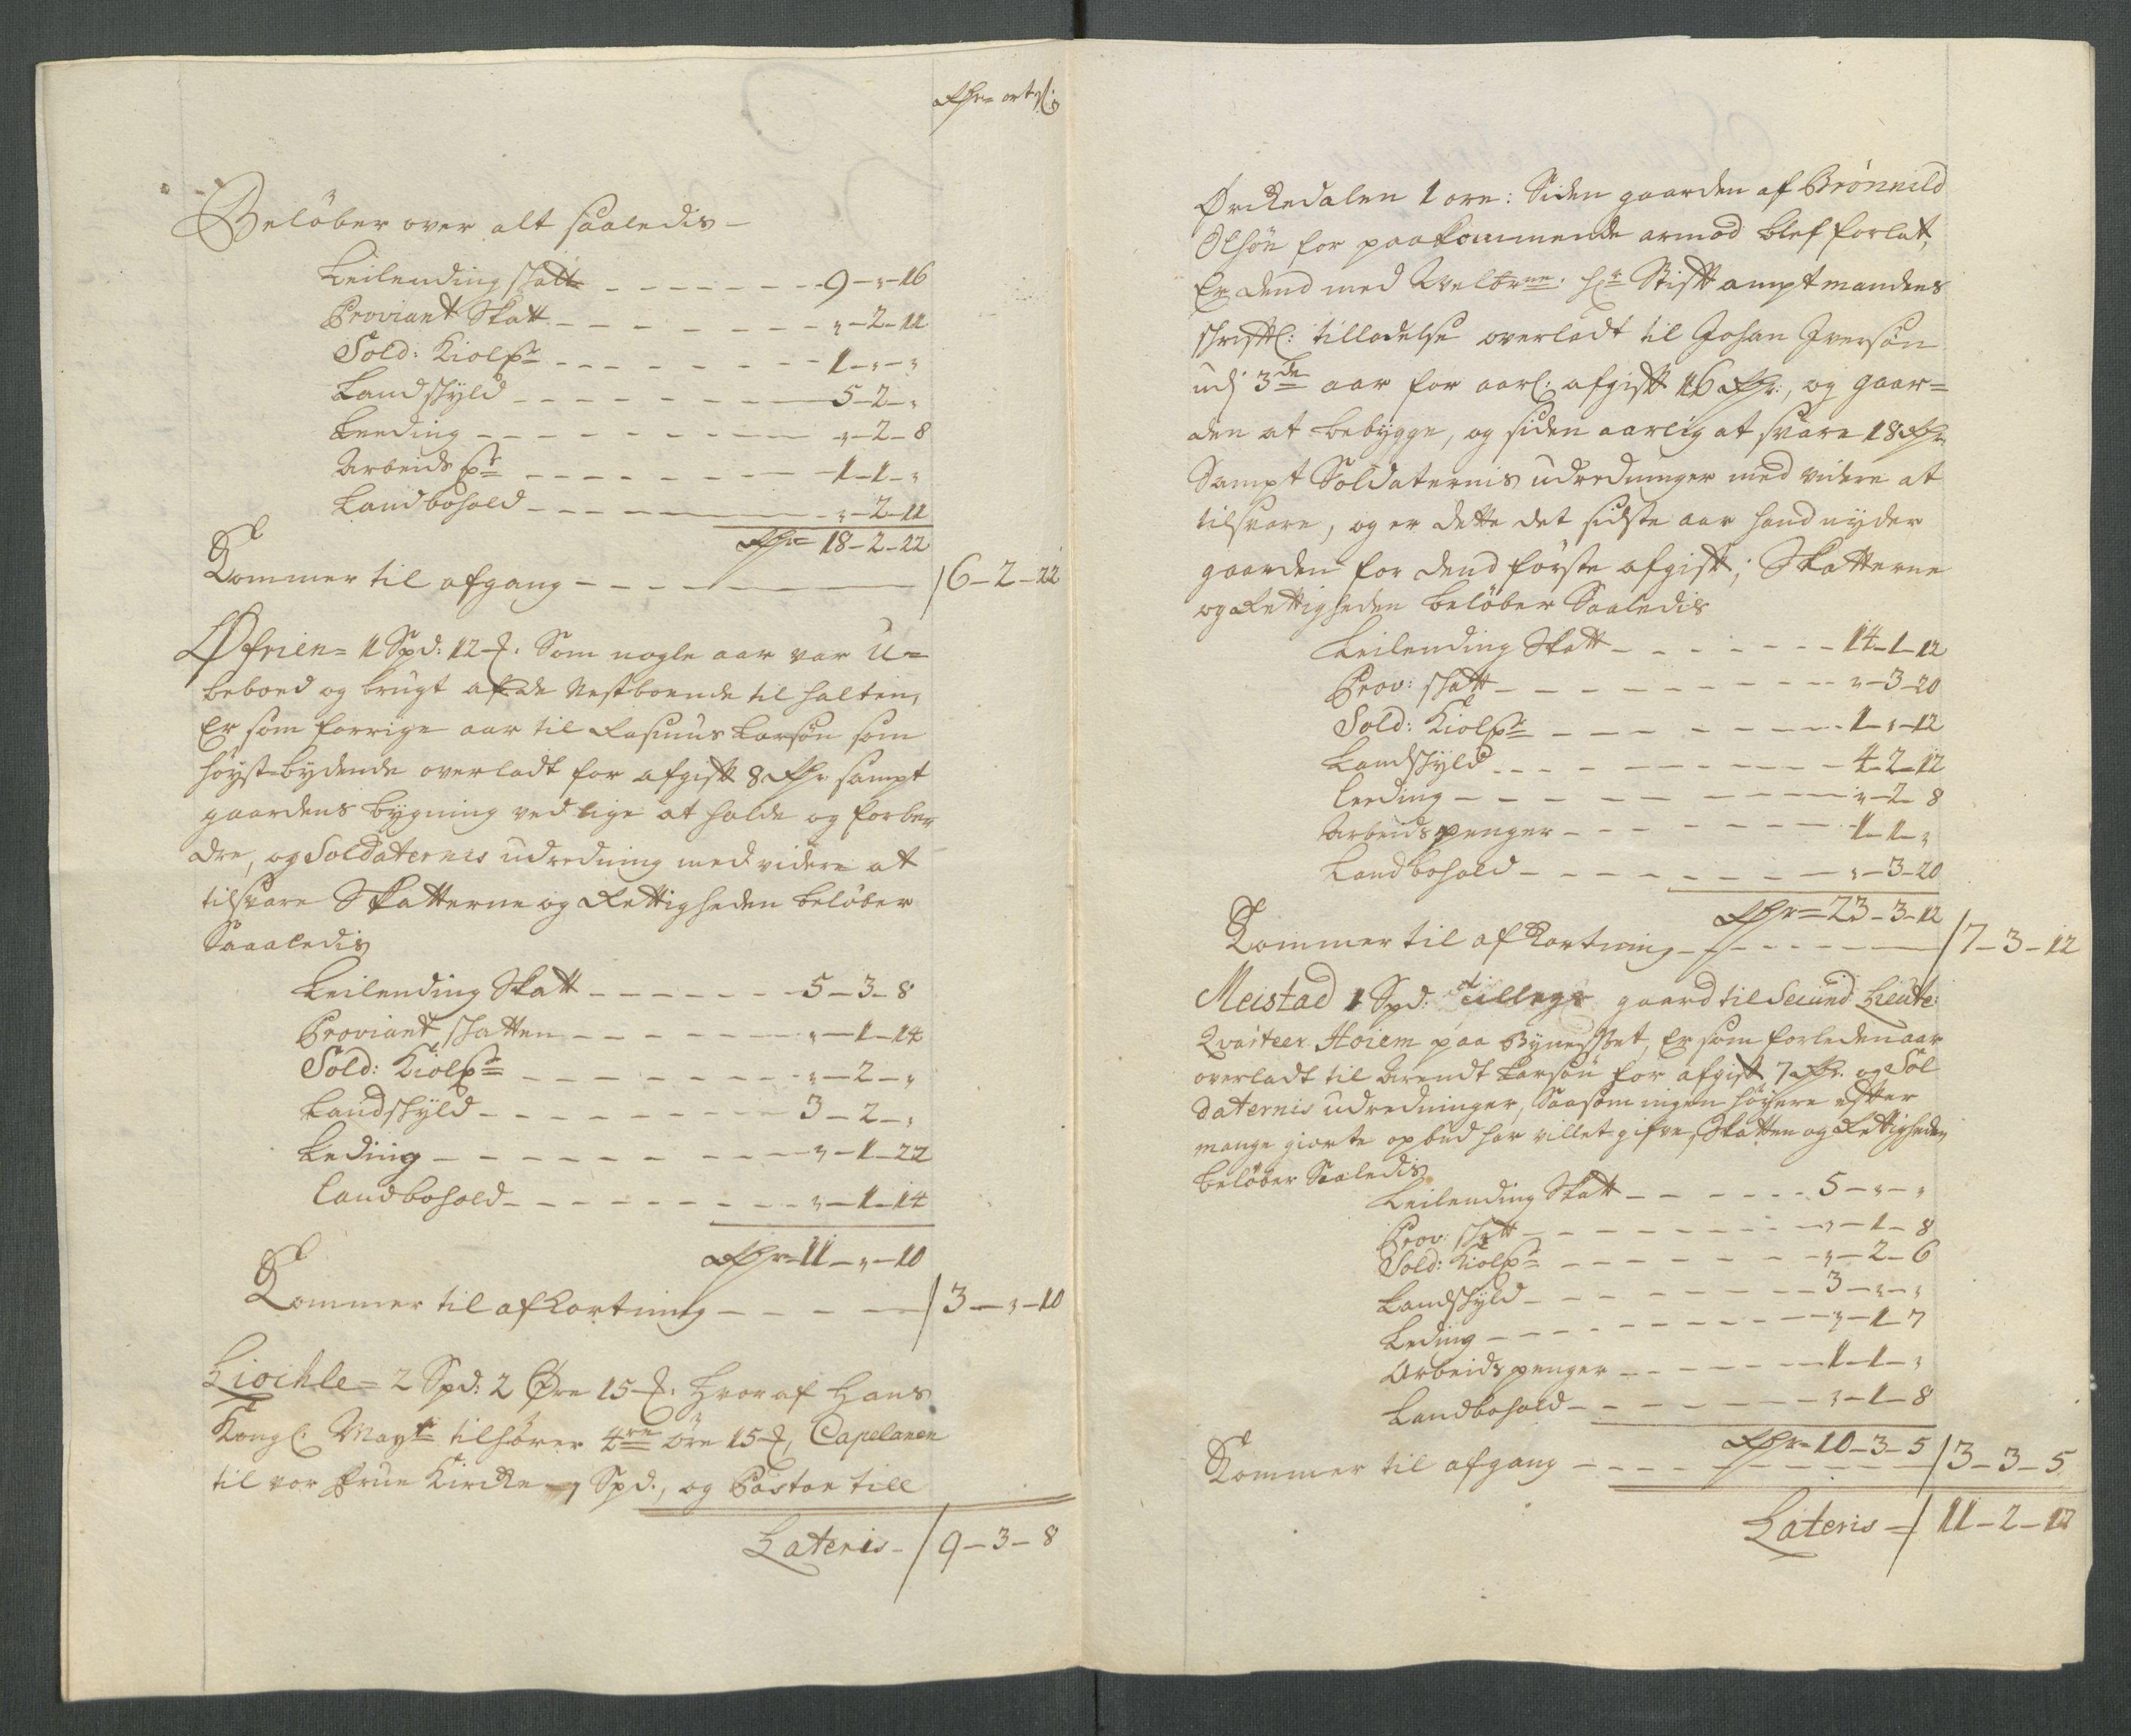 Rdr ort s:
Beløber over alt saaledis
Leilending skatt - - - - - - - 9-"-16
Proviant Skatt - - - - - - - "-2-11
Sold: Kiolp - - - - - - - 1-"-"
Landskyld - - - - - - - 5-2-"
Leeding - - - - - - - "-2-8
Arbeids p - - - - - - - 1-1-"
Landbohold - - - - - - - "-2-11
Rdr= 18-2-22
Kommer til afgang - - - - - 6-2-22
Øfrien= 1 Spd: 12 . Som nogle aar var U=
beboed og brugt af de Nestboende til halten,
Er som forrige aar til Rasmus Larsøn som
høyst-bydende overladt for afgift 8 Rdr sampt
gaardens bygning ved lige at holde og forbe
dre, og Soldaternis udredning med videre at
tilsvare Skatterne og Rettigheden beløber
Saaaledis
Leilending Skatt - - - - - - 5-3-8
Proviant skatten - - - - - - "-1-14
Sold: Kiolp - - - - - - "-2-"
Landskyld - - - - - - 3-2-"
Leding - - - - - - "-1-22
Landbohold - - - - - - "-1-14
Rdr= 11-"-10
Kommer til afkortning - - - - 3-"-10
Liøchle= 2 Spd: 2 Øre 15 . Hvoraf Hans
Kongl: Mayt tilhører 4re øre 15 , Capelanen
til vor Frue Kircke 1 Spd:, og Pastor till
Lateris - 9-3-8
Ørckedalen 1 øre: Siden gaarden af Brønnild
Olsøn for paakommende armod blef forlat,
Er dend med Welbrne: Hr Stiftamptmandens
skriftl: tilladelse overladt til Johan Iversøn
udj 3de aar for aarl: afgift 16 Rdr:, og gaar=
den at bebygge, og siden aarlig at svare 18 Rdr
Sampt Soldaternis udredninger med videre at
tilsvare, og er dette det sidste aar hand nyder
gaarden for dend første afgift; Skatterne
og Rettigheden beløber Saaledis
Leilending Skatt - - - - - - 14-1-12
Prov: skatt - - - - - - "-3-20
Sold: Kiolp - - - - - - 1-"-12
Landskyld - - - - - - 4-2-12
Leeding - - - - - - "-2-8
Arbeidspenger - - - - - - 1-1-"
Landbohold - - - - - - "-3-20
Rdr= 23-3-12
Kommer til afkortning - - - - - 7-3-12
Meistad 1 Spd: tillegs gaard til Secund Lieute:
Qvarteer Høiem paa Byneset, Er som forleden aar
overladt til Arendt Larsøn for afgift 7 Rdr. og Sol
daternis udredninger, Saasom ingen høyere efter
mange giorte opbud har villet gifve, Skatten og Rettigheden
beløber Saaledis
Leilending Skatt - - - - - - 5-"-"
Prov: skatt - - - - - - "-1-8
Sold: Kiolp - - - - - - "-2-6
Landskyld - - - - - - 3-"-"
Leding - - - - - - "-1-7
Arbeidspenger - - - - - - 1-1-"
Landbohold - - - - - - "-1-8
Rdr= 10-3-5
Kommer til afgang - - - - - 3-3-5
Lateris - 11-2-17